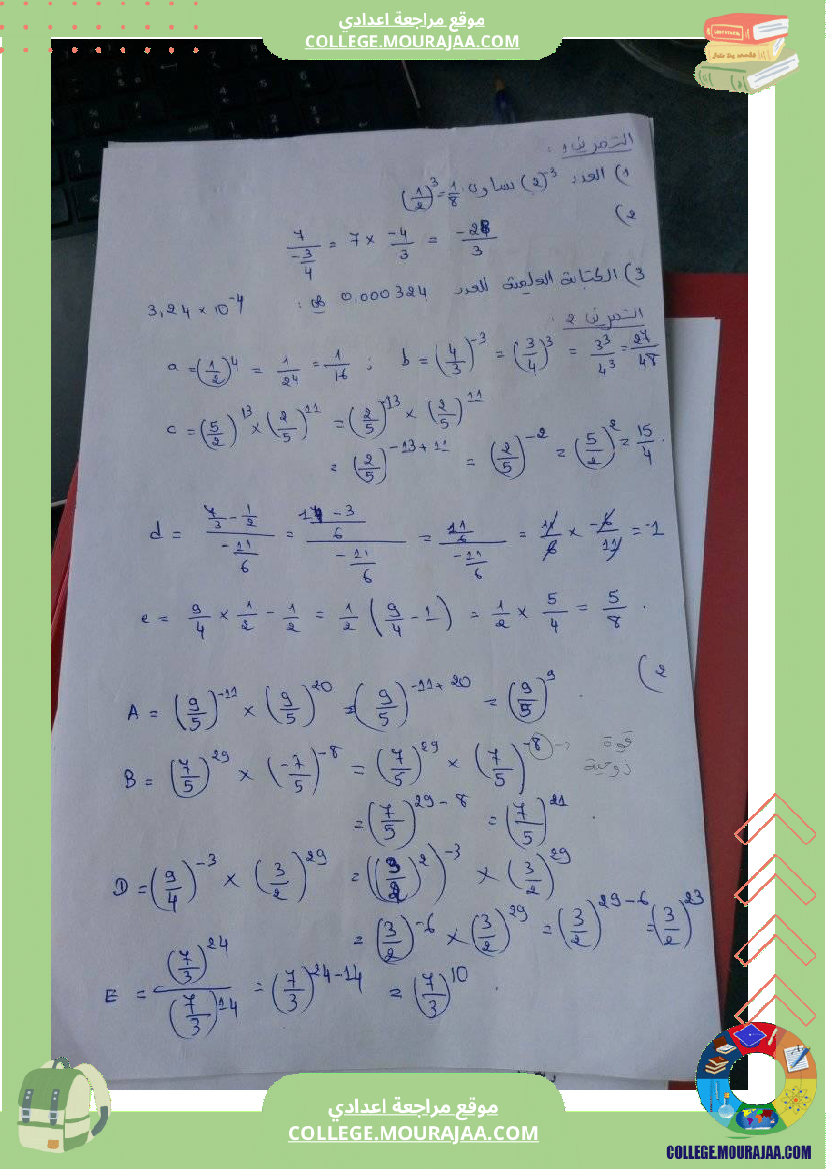 موقع مراجعة اعدادي
COLLEGE.MOURAJAA.COM
التمرين 1 :
1) العدد (2)^-3 يساوي (1/2)^3 = 1/8
2)
7/(-3/4) = 7 × -4/3 = -28/3
3) الكتابة العلمية للعدد 0.000324 هي : 3,24 × 10^-4
التمرين 2
a = (1/2)^4 = 1/2^4 = 1/16 ; b = (4/3)^-3 = (3/4)^3 = 3^3/4^3 = 27/48
c = (5/2)^13 × (2/5)^11 = (2/5)^-13 × (2/5)^11
= (2/5)^-13+11 = (2/5)^-2 = (5/2)^2 = 15/4 .
d = (7/3 - 1/2)/(-11/6) = ((14 - 3)/6)/(-11/6) = (11/6)/(-11/6) = 11/6 × -6/11 = -1
e = 9/4 × 1/2 - 1/2 = 1/2 (9/4 - 1) = 1/2 × 5/4 = 5/8 .
2)
A = (9/5)^-11 × (9/5)^20 = (9/5)^-11+20 = (9/5)^9 .
B = (7/5)^29 × (-7/5)^-8 = (7/5)^29 × (7/5)^-8 → قوة
زوجية
= (7/5)^29-8 = (7/5)^21 .
D = (9/4)^-3 × (3/2)^29 = ((3/2)^2)^-3 × (3/2)^29
= (3/2)^-6 × (3/2)^29 = (3/2)^29-6 = (3/2)^23
E = (7/3)^24/(7/3)^14 = (7/3)^24-14 = (7/3)^10 .
موقع مراجعة اعدادي
COLLEGE.MOURAJAA.COM
COLLEGE.MOURAJAA.COM